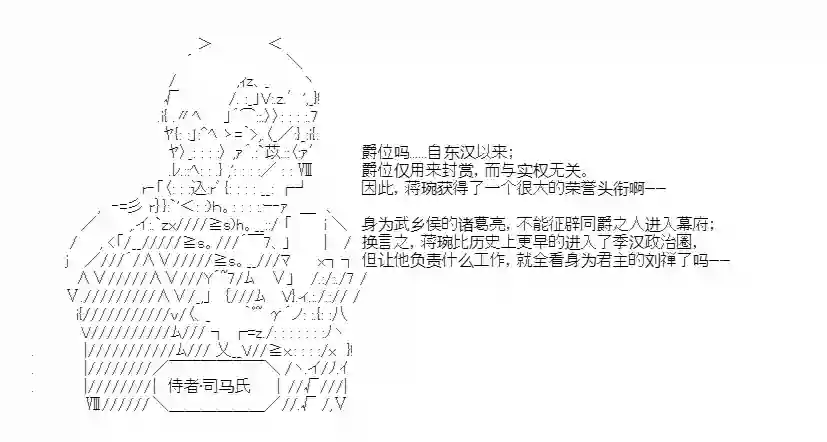 爵位吗.....自东汉以来；
爵位仅用来封赏，而与实权无关。
因此，蒋琬获得了一个很大的荣誉头衔啊——
身为武乡侯的诸葛亮，不能征辟同爵之人进入幕府；
换言之，蒋琬比历史上更早的进入了季汉政治圈，
但让他负责什么工作，就全看身为君主的刘禅了吗——
侍者·司马氏